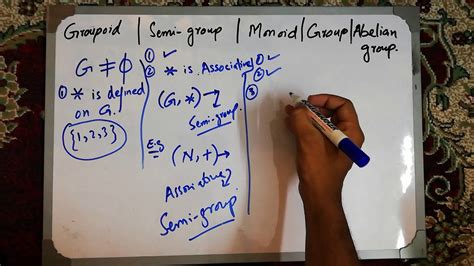 Groupoid | Semi-group | Monoid | Group | Abelian
group.
G ≠ ϕ
① * is defined
on G.
{1,2,3}
① ✓
② * is Associative
(G, *) →
Semi-group.
E.g
(N, +) →
Associative
Semi-group.
① ✓
② ✓
③